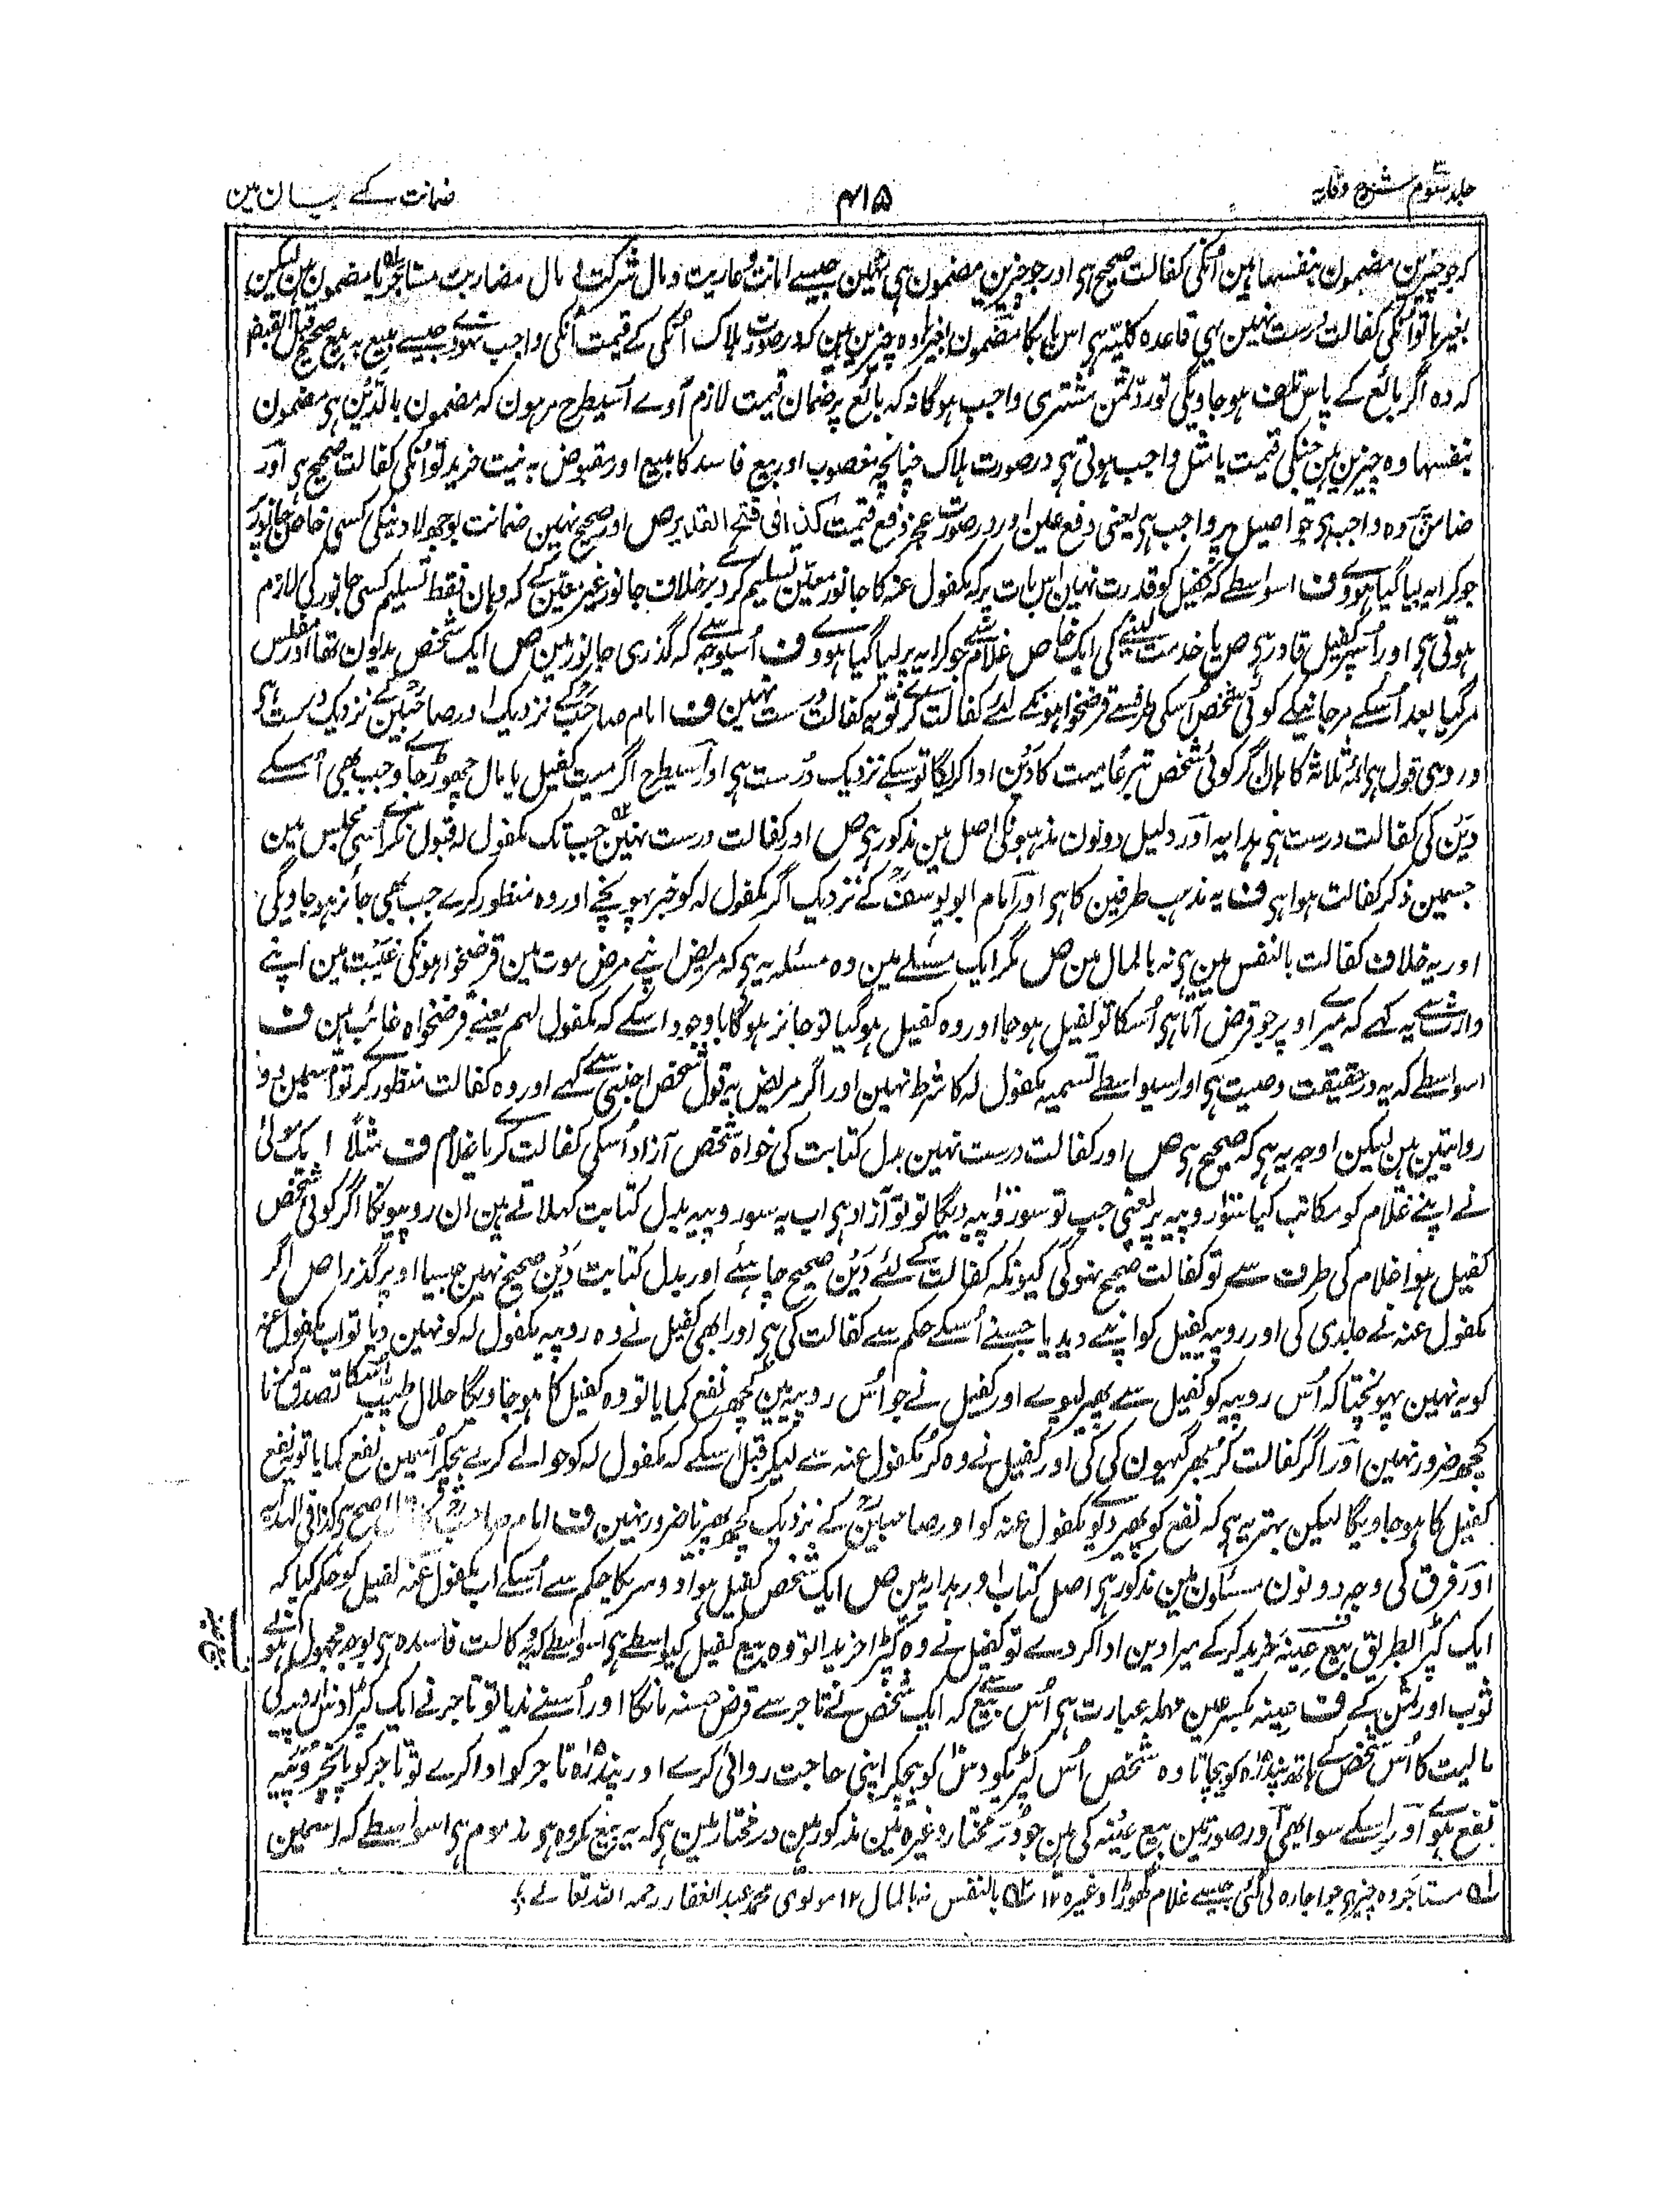 جلد سوم شرح وقایہ
۴۱۵
ضمانت کے بیان مین
کہ جو چیزین مضمون بنفسہا ہین اُنکی کفالت صحیح ہی اور جو چیزین مضمون ہی نہین جیسے امانت و عاریت و مال شرکت مال مضاربت مستاجر یا مضمون ہین لیکن
بغیرہا تو اُنکی کفالت درست نہین یہی قاعدہ کلیہ ہی اس باب کا مضمون بغیرہا وہ چیزین ہین کہ درصورت ہلاک اُنکی کے قیمت اُنکی واجب نہووے جیسے مبیع بہ بیع صحیح قبل القبض
کہ وہ اگر بائع کے پاس تلف ہوجاویگی تو ردّ ثمن مشتری واجب ہوگا نہ کہ بائع پر ضمان قیمت لازم آوے اسیطرح مرہون کہ مضمون بالدّین ہی مضمون
بنفسہا وہ چیزین ہین جنکی قیمت یا مثل واجب ہوتی ہی درصورت ہلاک چنانچہ مغصوب اور بیع فاسد کا مبیع اور مقبوض بہ نیت خرید تو اُنکی کفالت صحیح ہی اور
ضامن پر وہ واجب ہی جو اصیل پر واجب ہی یعنی دفع عین اور درصورت عجز دفع قیمت کذا فی فتح القدیر ص اور صحیح نہین ضمانت بوجھ لادنیکی کسی خاص جانور پر
جو کرایہ لیا گیا ہووے ف اسواسطے کہ کفیل کو قدرت نہین اس بات پر کہ مکفول عنہ کا جانور معین تسلیم کردے برخلاف جانور غیر معین کے کہ وہان فقط تسلیم کسی جانور کی لازم
ہوتی ہی اور اُسپر کفیل قادر ہی ص یا خدمت لینے کی ایک خاص غلام سے جو کرایہ پر لیا گیا ہووے ف اُسیوجہ سے کہ گذری جانور مین ص ایک شخص مدیون تھا اور مفلس
مرگیا بعد اُسکے مرجانیکے کوئی شخص اُسکی طرفسے قرضخواہونکے لئے کفالت کرے تو یہ کفالت درست نہین ف امام صاحب کے نزدیک اور صاحبین کے نزدیک درست ہی
اور وہی قول ہی ائمہ ثلاثہ کا ہان اگر کوئی شخص تبرعاً میت کا دَین ادا کریگا تو سبکے نزدیک درست ہی اور اسیطرح اگر میت کفیل یا مال چھوڑ جاوے جب بھی اُسکے
دَین کی کفالت درست ہی ہدایہ اور دلیل دونون مذہبونکی اصل مین مذکور ہی ص اور کفالت درست نہین جبتک مکفول لہ قبول نکرے اُسی مجلس مین
جسمین ذکر کفالت ہوا ہی ف یہ مذہب طرفین کا ہی اور امام ابو یوسف کے نزدیک اگر مکفول لہ کو خبر پہونچے اور وہ منظور کرے جب بھی جائز ہوجاویگی
اور یہ خلاف کفالت بالنفس مین ہی نہ بالمال مین ص مگر ایک مسئلے مین وہ مسئلہ یہ ہی کہ مریض اپنے مرض موت مین قرضخواہونکی غیبت مین اپنے
وارث سے یہ کہے کہ میرے اوپر جو قرض آتا ہی اُسکا تو کفیل ہوجا اور وہ کفیل ہوگیا تو جائز ہوگا باوجود اسکے کہ مکفول لہم یعنے قرضخواہ غائب ہین ف
اسواسطے کہ یہ درحقیقت وصیت ہی اور اسیواسطے تسمیہ مکفول لہ کا شرط نہین اور اگر مریض یہ قول شخص اجنبی سے کہے اور وہ کفالت منظور کرے تو اسمین دو
روایتین ہین لیکن اوجہ یہ ہی کہ صحیح ہی ص اور کفالت درست نہین بدل کتابت کی خواہ شخص آزاد اُسکی کفالت کرے یا غلام ف مثلاً ایک مولیٰ
نے اپنے غلام کو مکاتب کیا سو روپیہ پر یعنی جب تو سو روپیہ دیگا تو تو آزاد ہی اب یہ سو روپیہ بدل کتابت کہلاتے ہین ان روپیونکا اگر کوئی شخص
کفیل ہوا غلام کی طرف سے تو کفالت صحیح نہوگی کیونکہ کفالت کے لئے دَین صحیح چاہئے اور بدل کتابت دَین صحیح نہین جیسا اوپر گذرا ص اگر
مکفول عنہ نے جلدی کی اور روپیہ کفیل کو اپنے دیدیا جسنے اُسکے حکم سے کفالت کی ہی اور ابھی کفیل نے وہ روپیہ مکفول لہ کو نہین دیا تو اب مکفول عنہ
کو یہ نہین پہونچتا کہ اُس روپیہ کو کفیل سے پھیر لیوے اور کفیل نے جو اُس روپیہ مین کچھ نفع کمایا تو وہ کفیل کا ہوجاویگا حلال طیب اُسکا تصدق کرنا
کچھ ضرور نہین اور اگر کفالت کُر بھر گیہون کی کی اور کفیل نے وہ کُر مکفول عنہ سے لیکر قبل اسکے کہ مکفول لہ کو حوالے کرے بیچکر اُسمین نفع کمایا تو یہ نفع
کفیل کا ہوجاویگا لیکن بہتر یہ ہی کہ نفع کو پھیر دے مکفول عنہ کو اور صاحبین کے نزدیک کچھ پھیرنا ضرور نہین ف امام صاحب اصح ہی کذا فی الہدایہ
اور فرق کی وجہ دونون مسئلون مین مذکور ہی اصل کتاب اور ہدایہ مین ص ایک شخص کفیل ہوا دوسریکا حکم سے اُسکے اب مکفول عنہ نے کفیل کو حکم کیا کہ
ایک کپڑا بطریق بیع عینہ خرید کرکے میرا دین ادا کردے تو کفیل نے وہ کپڑا خریدا تو وہ بیع کفیل کیواسطے ہی اسواسطے کہ یہ وکالت فاسدہ ہی بوجہ مجہول ہونے
ثوب اور ثمن کے ف عینہ بکسر عین مہملہ عبارت ہی اُس بیع سے کہ ایک شخص نے تاجر سے قرض حسنہ مانگا اور اُسنے ندیا تو تاجر نے ایک کپڑا دس روپیہ کی
مالیت کا اُس شخص کے ہاتھ پندرہ کو بیچا تا وہ شخص اُس کپڑیکو دس کو بیچکر اپنی حاجت روائی کرے اور پندرہ تاجر کو ادا کرے تو تاجر کو پانچ روپیہ
نفع ہوے اور اسکے سوا بھی اور صورتین بیع عینہ کی ہین جو در مختار وغیرہ مین مذکور ہین در مختار مین ہی کہ یہ بیع مکروہ ہی مذموم ہی اسواسطے کہ اسمین
۱؎ مستاجر وہ چیز ہی جو اجارہ لی گئی جیسے غلام گھوڑا وغیرہ ۱۲ ۲؎ بالنفس نہ بالمال ۱۲ مولوی محمد عبد الغفار رحمہ اللہ تعالے